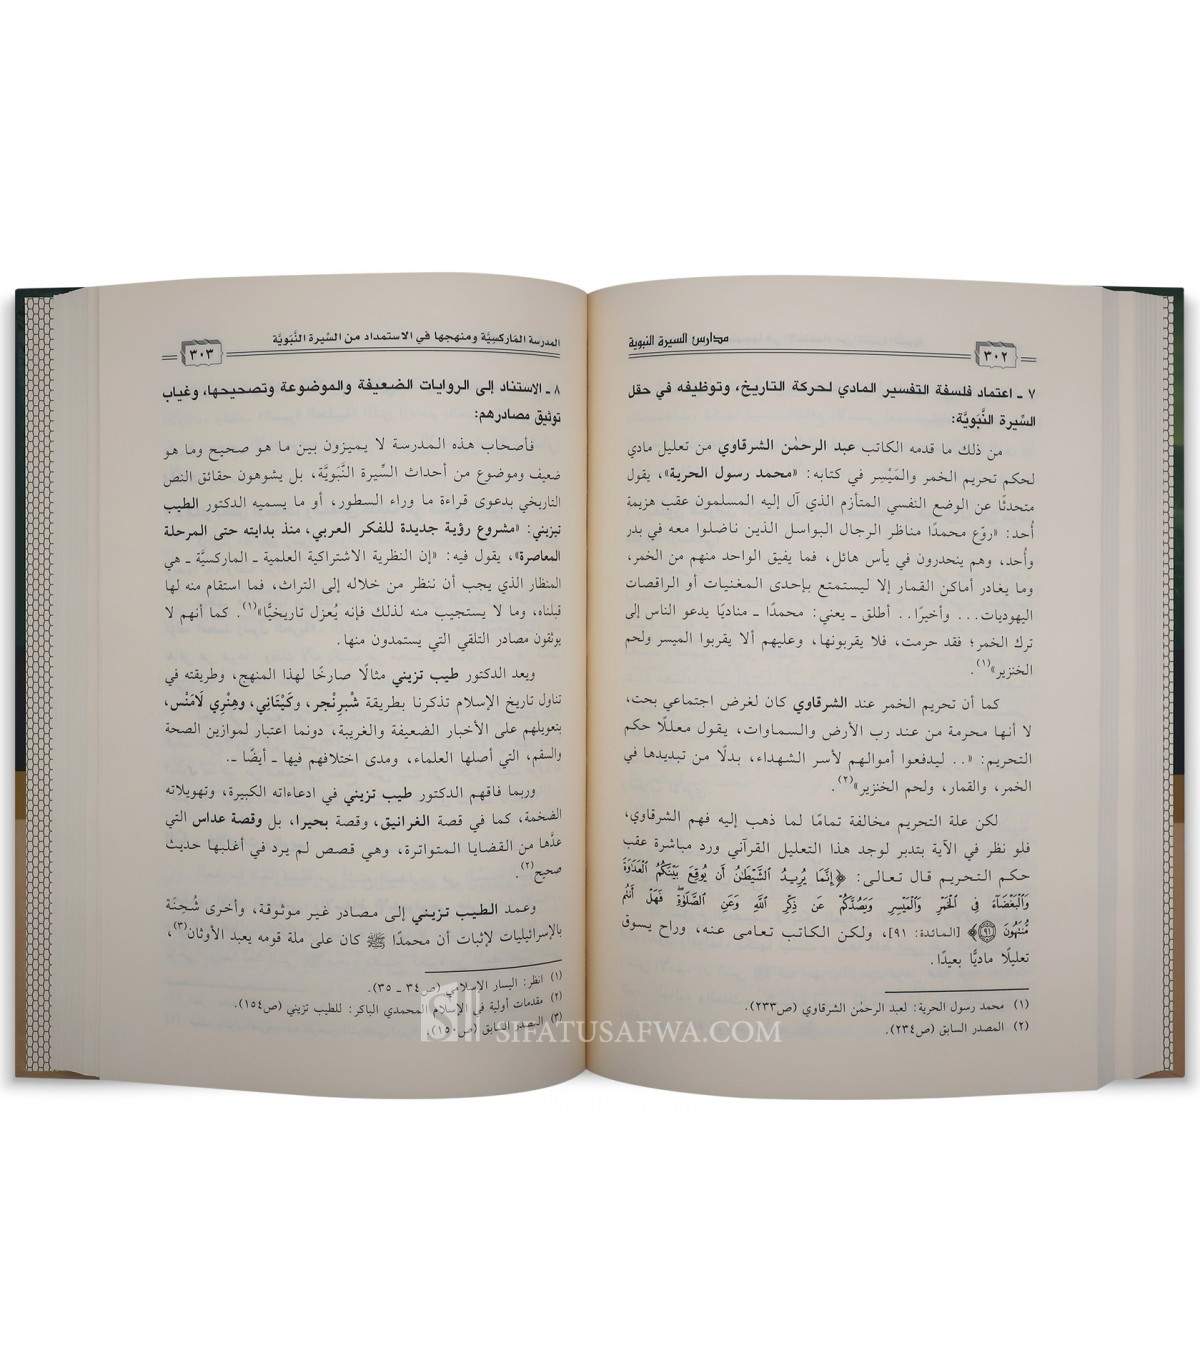 مدارس السيرة النبوية
٣٠٢
٧ ـ اعتماد فلسفة التفسير المادي لحركة التاريخ، وتوظيفه في حقل
السِّيرة النَّبَويَّة:
من ذلك ما قدمه الكاتب عبد الرحمٰن الشرقاوي من تعليل مادي
لحكم تحريم الخمر والمَيْسِر في كتابه: «محمد رسول الحرية»، يقول
متحدثًا عن الوضع النفسي المتأزم الذي آل إليه المسلمون عقب هزيمة
أُحد: «روّع محمدًا مناظر الرجال البواسل الذين ناضلوا معه في بدر
وأُحد، وهم ينحدرون في يأس هائل، فما يفيق الواحد منهم من الخمر،
وما يغادر أماكن القمار إلا ليستمتع بإحدى المغنيات أو الراقصات
اليهوديات... وأخيرًا.. أطلق ـ يعني: محمدًا ـ مناديًا يدعو الناس إلى
ترك الخمر؛ فقد حرمت، فلا يقربونها، وعليهم ألا يقربوا الميسر ولحم
الخنزير»(١).
كما أن تحريم الخمر عند الشرقاوي كان لغرض اجتماعي بحت،
لا أنها محرمة من عند رب الأرض والسماوات، يقول معللًا حكم
التحريم: «.. ليدفعوا أموالهم لأسر الشهداء، بدلًا من تبديدها في
الخمر، والقمار، ولحم الخنزير»(٢).
لكن علة التحريم مخالفة تمامًا لما ذهب إليه فهم الشرقاوي،
فلو نظر في الآية بتدبر لوجد هذا التعليل القرآني ورد مباشرة عقب
حكم التحريم قال تعالى: ﴿إِنَّمَا يُرِيدُ ٱلشَّيْطَٰنُ أَن يُوقِعَ بَيْنَكُمُ ٱلْعَدَٰوَةَ
وَٱلْبَغْضَآءَ فِى ٱلْخَمْرِ وَٱلْمَيْسِرِ وَيَصُدَّكُمْ عَن ذِكْرِ ٱللَّهِ وَعَنِ ٱلصَّلَوٰةِ ۖ فَهَلْ أَنتُم
مُّنتَهُونَ ٩١﴾ [المائدة: ٩١]، ولكن الكاتب تعامى عنه، وراح يسوق
تعليلًا ماديًّا بعيدًا.
(١) محمد رسول الحرية: لعبد الرحمٰن الشرقاوي (ص٢٣٣).
(٢) المصدر السابق (ص٢٣٤).
المدرسة المَاركسِيَّة ومنهجها في الاستمداد من السِّيرة النَّبَويَّة
٣٠٣
٨ ـ الاستناد إلى الروايات الضعيفة والموضوعة وتصحيحها، وغياب
توثيق مصادرهم:
فأصحاب هذه المدرسة لا يميزون بين ما هو صحيح وما هو
ضعيف وموضوع من أحداث السِّيرة النَّبَويَّة، بل يشوهون حقائق النص
التاريخي بدعوى قراءة ما وراء السطور، أو ما يسميه الدكتور الطيب
تيزيني: «مشروع رؤية جديدة للفكر العربي، منذ بدايته حتى المرحلة
المعاصرة»، يقول فيه: «إن النظرية الاشتراكية العلمية ـ الماركسيَّة ـ هي
المنظار الذي يجب أن ننظر من خلاله إلى التراث، فما استقام منه لها
قبلناه، وما لا يستجيب منه لذلك فإنه يُعزل تاريخيًّا»(١). كما أنهم لا
يوثقون مصادر التلقي التي يستمدون منها.
ويعد الدكتور طيب تزيني مثالًا صارخًا لهذا المنهج، وطريقته في
تناول تاريخ الإسلام تذكرنا بطريقة شْبرِنْجر، وكَيْتَاني، وهِنْرِي لَامَنْس،
بتعويلهم على الأخبار الضعيفة والغريبة، دونما اعتبار لموازين الصحة
والسقم، التي أصلها العلماء، ومدى اختلافهم فيها ـ أيضًا ـ.
وربما فاقهم الدكتور طيب تزيني في ادعاءاته الكبيرة، وتهويلاته
الضخمة، كما في قصة الغرانيق، وقصة بحيرا، بل وقصة عداس التي
عدَّها من القضايا المتواترة، وهي قصص لم يرد في أغلبها حديث
صحيح(٢).
وعمد الطيب تزيني إلى مصادر غير موثوقة، وأخرى شُحِنَة
بالإسرائيليات لإثبات أن محمدًا ﷺ كان على ملة قومه يعبد الأوثان(٣)،
(١) انظر: اليسار الإسلامي (ص٣٤ ـ ٣٥).
(٢) مقدمات أولية في الإسلام المحمدي الباكر: للطيب تزيني (ص١٥٤).
(٣) المصدر السابق (ص١٥٠).
SIFATUSAFWA.COM